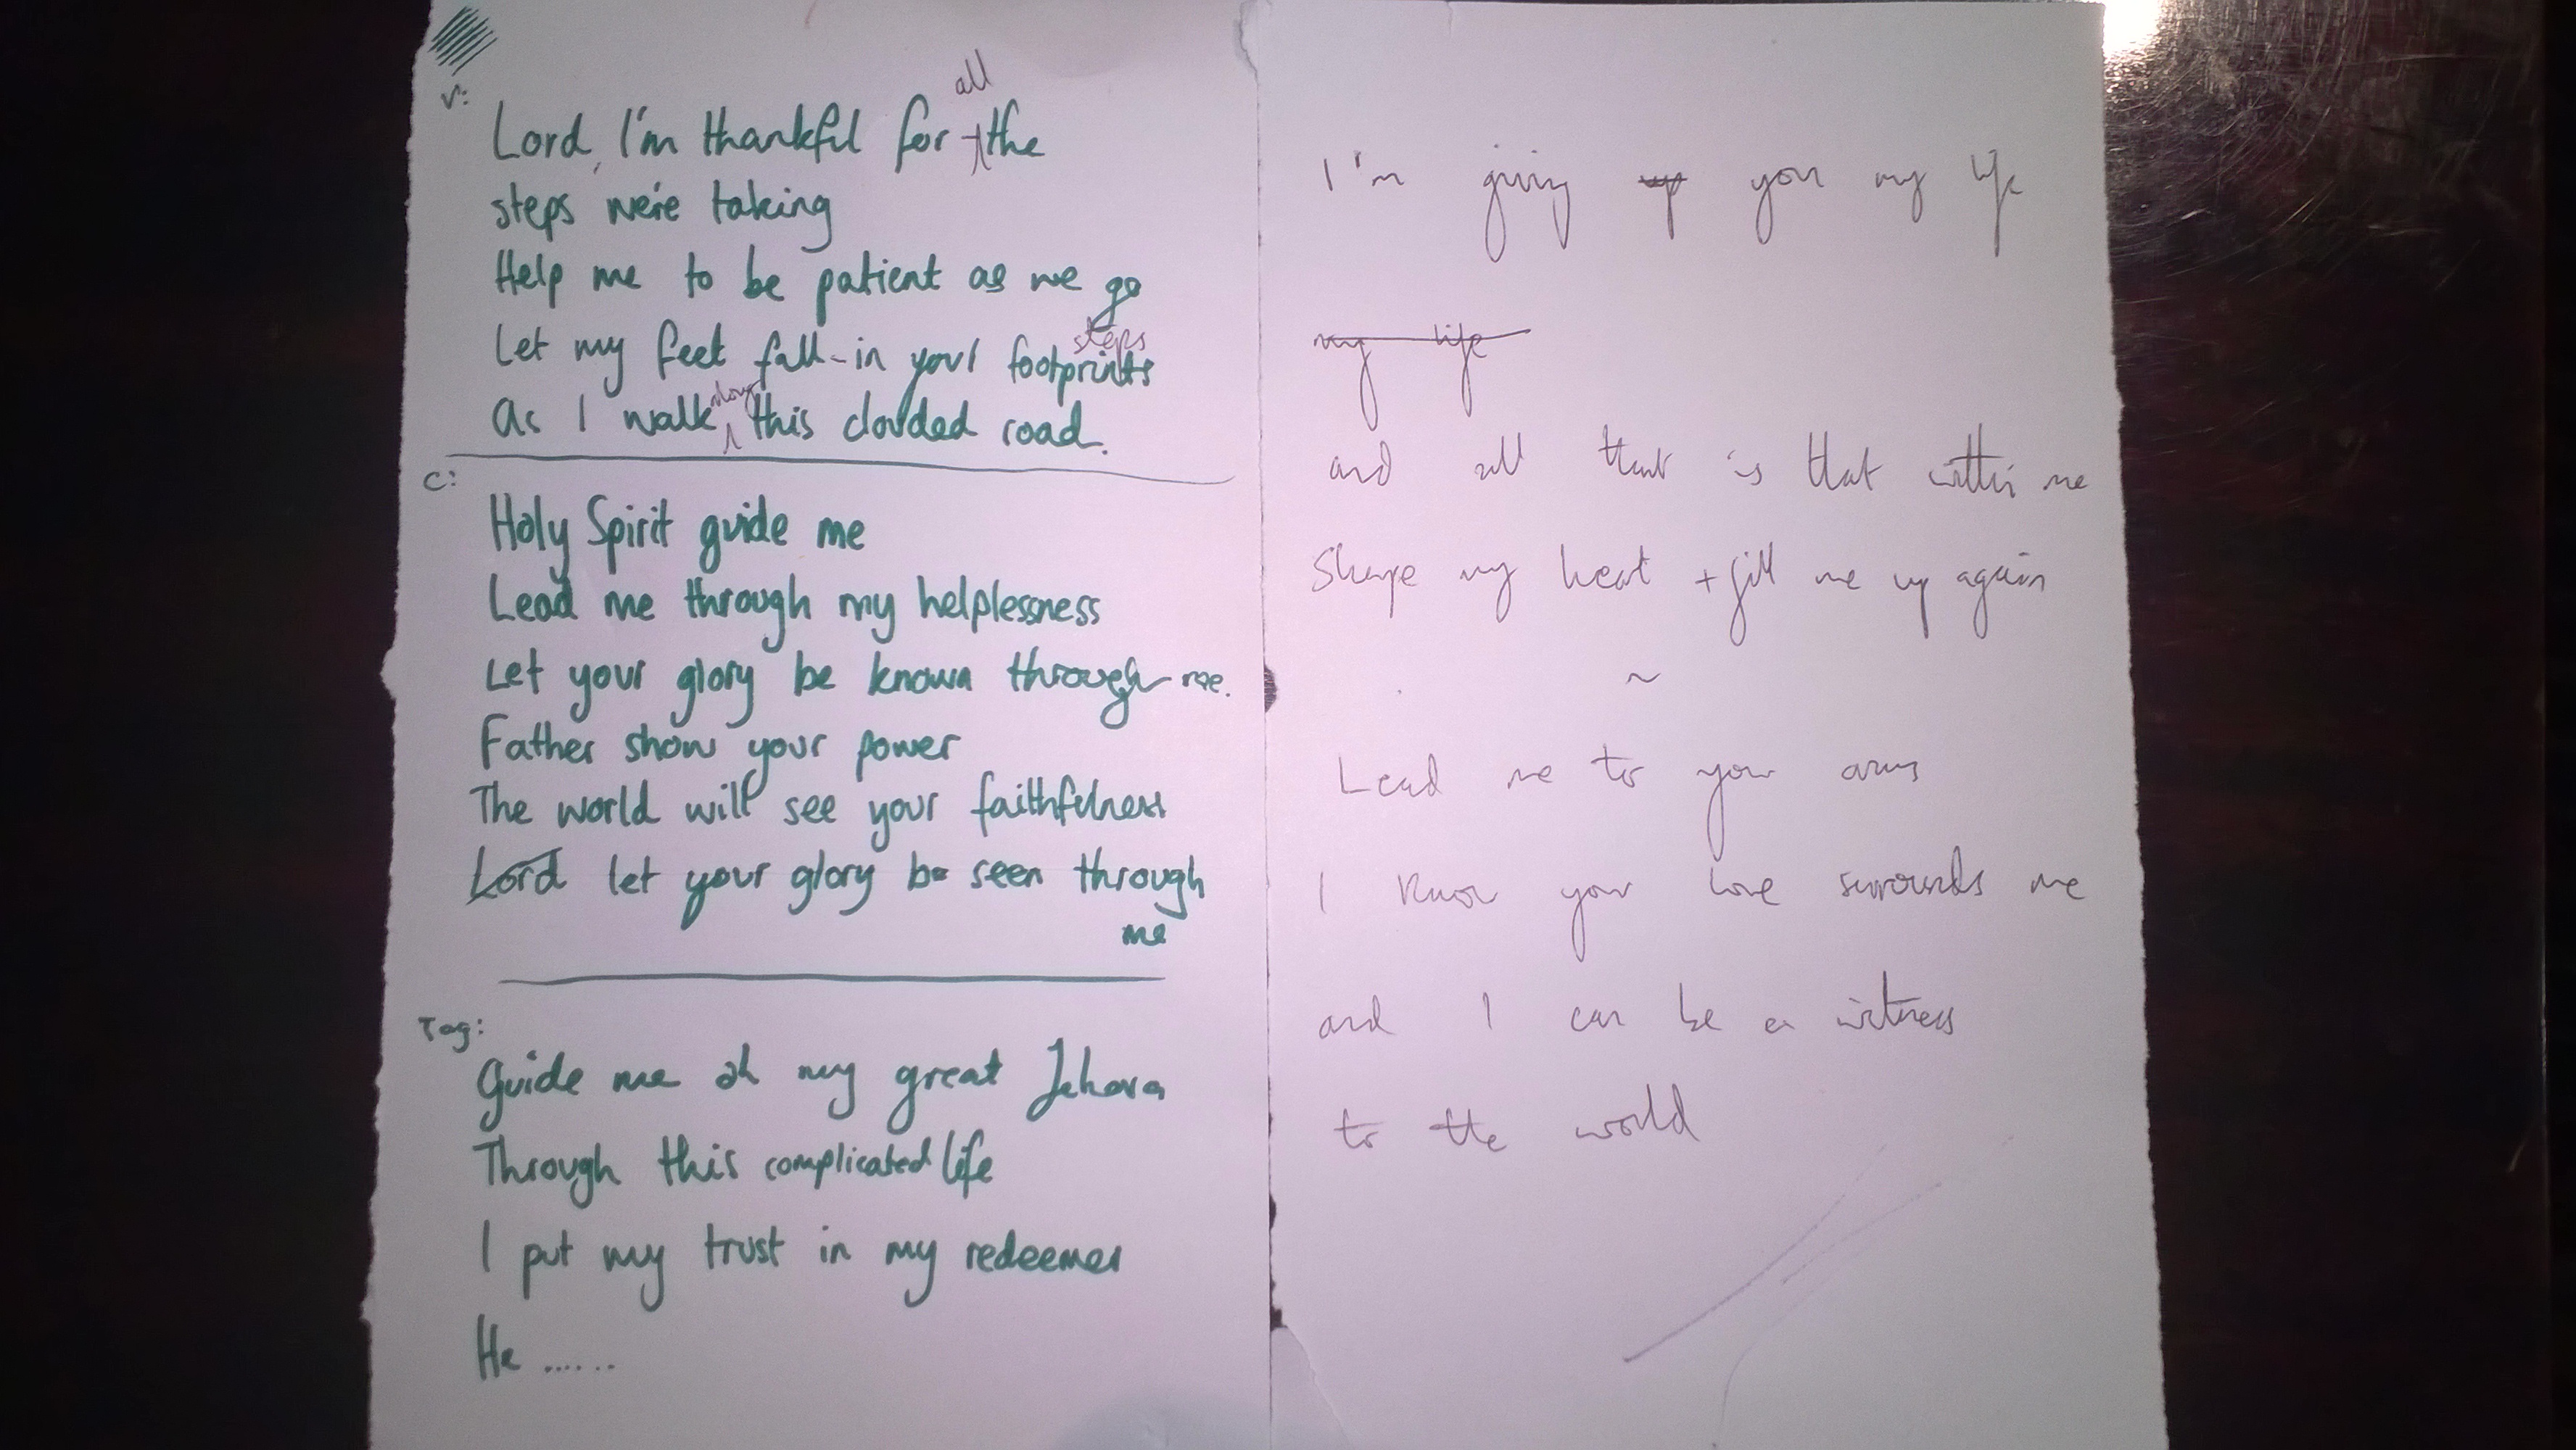 V:
Lord, I'm thankful for all the
steps we're taking
Help me to be patient as we go
Let my feet fall in your footprints
steps
As I walk along this clouded road.
C:
Holy Spirit guide me
Lead me through my helplessness
Let your glory be known through me.
Father show your power
The world will see your faithfulness
Lord let your glory be seen through
me
Tag:
Guide me oh my great Jehova
Through this complicated life
I put my trust in my redeemer
He ......
I'm giving up you my life
my life
and all that is that within me
Shape my heart + fill me up again
~
Lead me to your arms
I know your love surrounds me
and I can be a witness
to the world